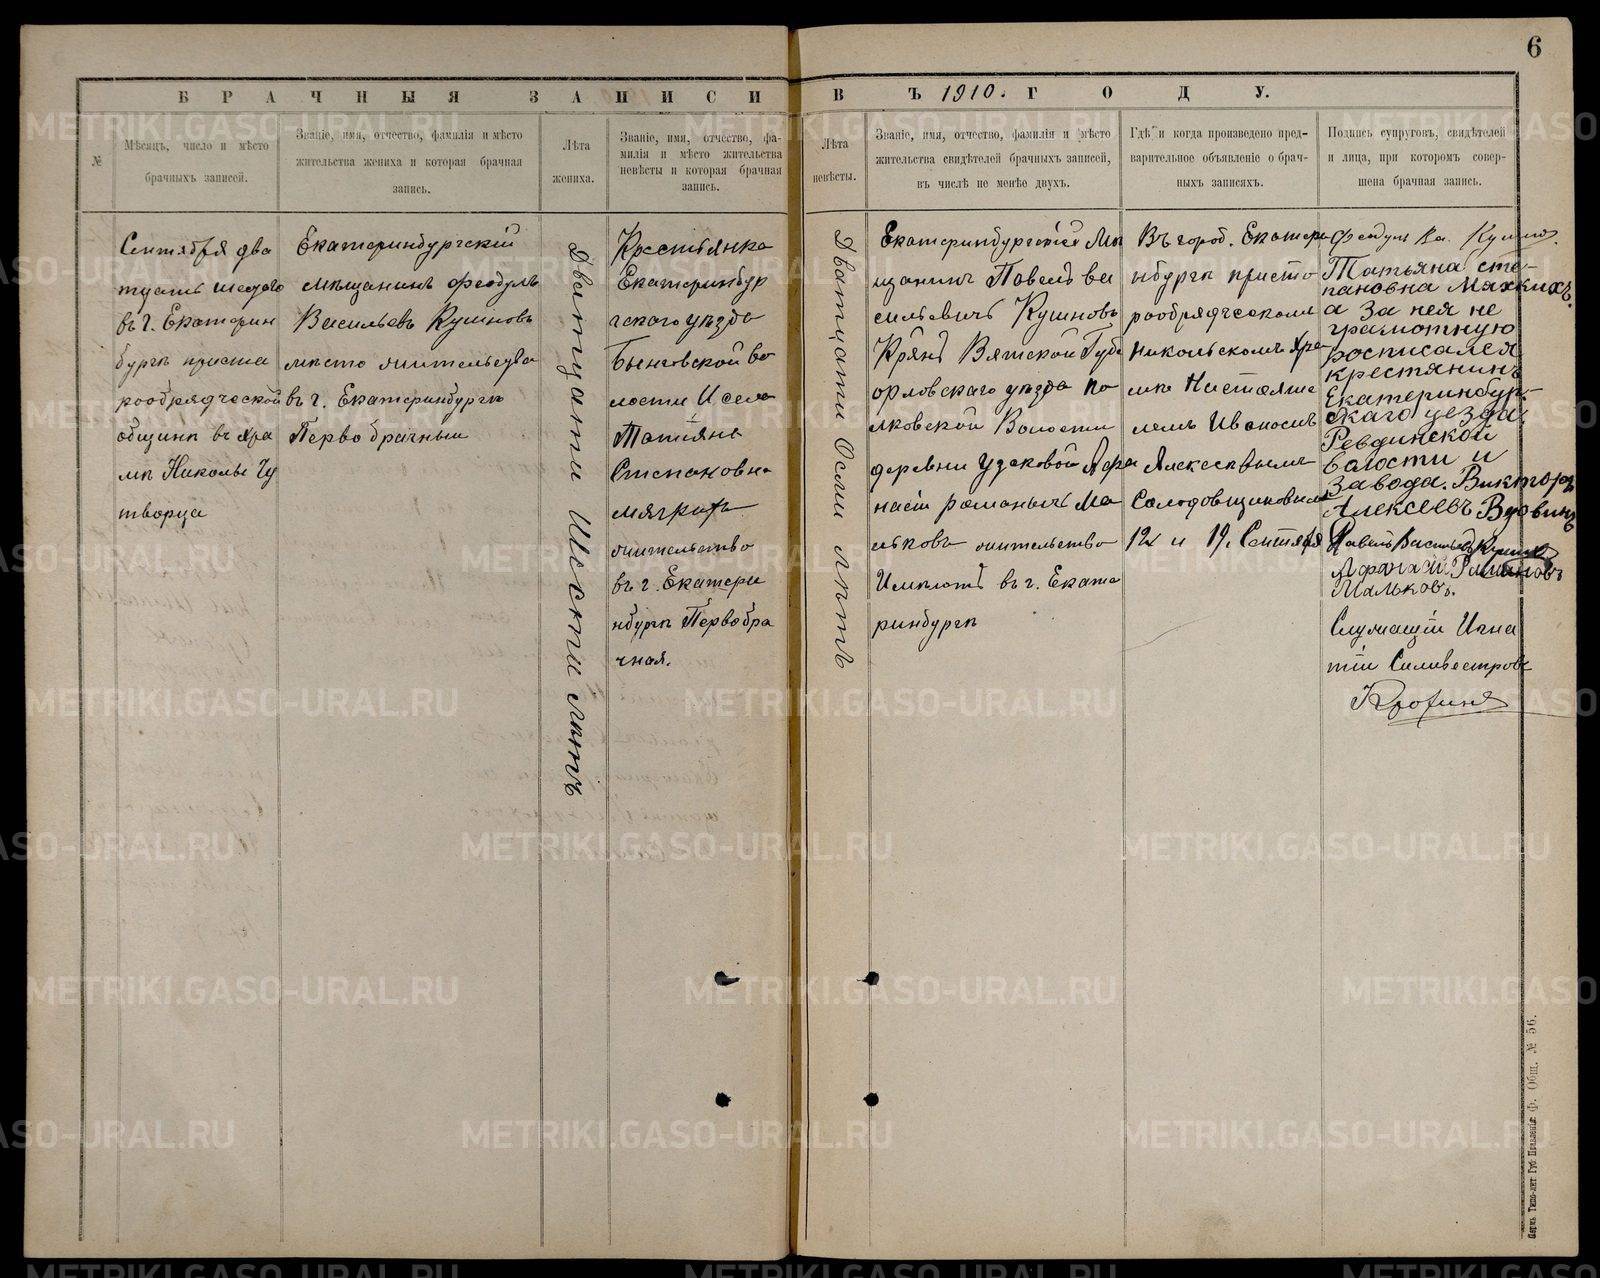 6
БРАЧНЫЯ ЗАПИСИ
ВЪ 1910. ГОДУ.
№
Мѣсяцъ, число и мѣсто
брачныхъ записей.
Званіе, имя, отчество, фамилія и мѣсто
жительства жениха и которая брачная
запись.
Лѣта
жениха.
Званіе, имя, отчество, фа-
милія и мѣсто жительства
невѣсты и которая брачная
запись.
Лѣта
невѣсты.
Званіе, имя, отчество, фамилія и мѣсто
жительства свидѣтелей брачныхъ записей,
въ числѣ не менѣе двухъ.
Гдѣ и когда произведено пред-
варительное объявленіе о брач-
ныхъ записяхъ.
Подпись супруговъ, свидѣтелей
и лица, при которомъ совер-
шена брачная запись.
Сентября два
тцать шестого
въ г. Екатерин
бургѣ приста
рообрядческой
общинѣ въ хра
мѣ Николы Чу
творца
Екатеринбургскій
мѣщанинъ Феодулъ
Васильевъ Кушновъ
мѣсто жительства
въ г. Екатеринбургѣ
Первобрачный
Дватцати Шести лѣтъ
Крестьянка
Екатеринбур
гскаго уѣзда
Бынговской во
лости И села
Татьяна
Степановна
мягкихъ
жительство
въ г. Екатери
нбургѣ Первобра
чная.
Дватцати Осми лѣтъ
Екатеринбургскій Мѣ
щанинъ Павелъ Ва
сильевичъ Кушновъ
Кр-нъ Вятской Губ.
орловскаго уѣзда по
лковской Волости
деревни Чузаковой Афа
насій романычъ Ма
льковъ жительство
Имѣютъ въ г. Екате
ринбургѣ
Въ город. Екатери
нбургѣ присто
рообрядческомъ
Никольскомъ Хра
мѣ Настояте
лемъ Иваномъ
Алексеевымъ
Солодовщиковымъ
12 и 19. Сентября
Феодулъ Ва. Кушно.
Татьяна сте-
пановна Мяхкихъ.
а За нея не
грамотную
росписался
крестянинъ
Екатеринбур-
скаго уезда.
Ревдинской
волости и
завода. Викторъ
Алексеевъ Вдовинъ
Павелъ Васильевъ Кушновъ
Афанасій. Романовъ
Мальковъ.
Служащій Игна
тій Силивестровъ
METRIKI.GASO-URAL.RU
Пермь Типо-лит Губ Правленія Ф. Общ. № 56.